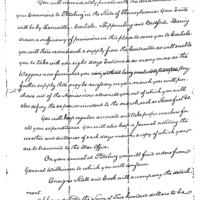 You will immediately provide with the detachment
you command to Pittsburg in the State of Pennsylvania. Your Route
will be by Lancaster, Carlisle, Shippensburg and Bedford. Having
drawn a sufficiency of provisions at this place to carry you to Carlisle
you will there draw such a supply from the Contractor as will enable
you to take with you eight days Rations & as many more as the
Waggons now furnished you can
further supply that may be necessary on your march you will pur-
chase out of the Monies now advanced you out of which you will
also defray the expenses incident to the march such as
You will keep regular accounts and take proper vouchers for
all your expenditures. You will also keep a journal noticing the
weather and distances of each days march a copy of which you
are to transmit to the War Office.
On your arrival at Pittsburg you will find orders from
General Wilkinson to which you will conform.
Ensigns and Cook will accompany the detach
ment.
the Sum of Five hundred dollars to be